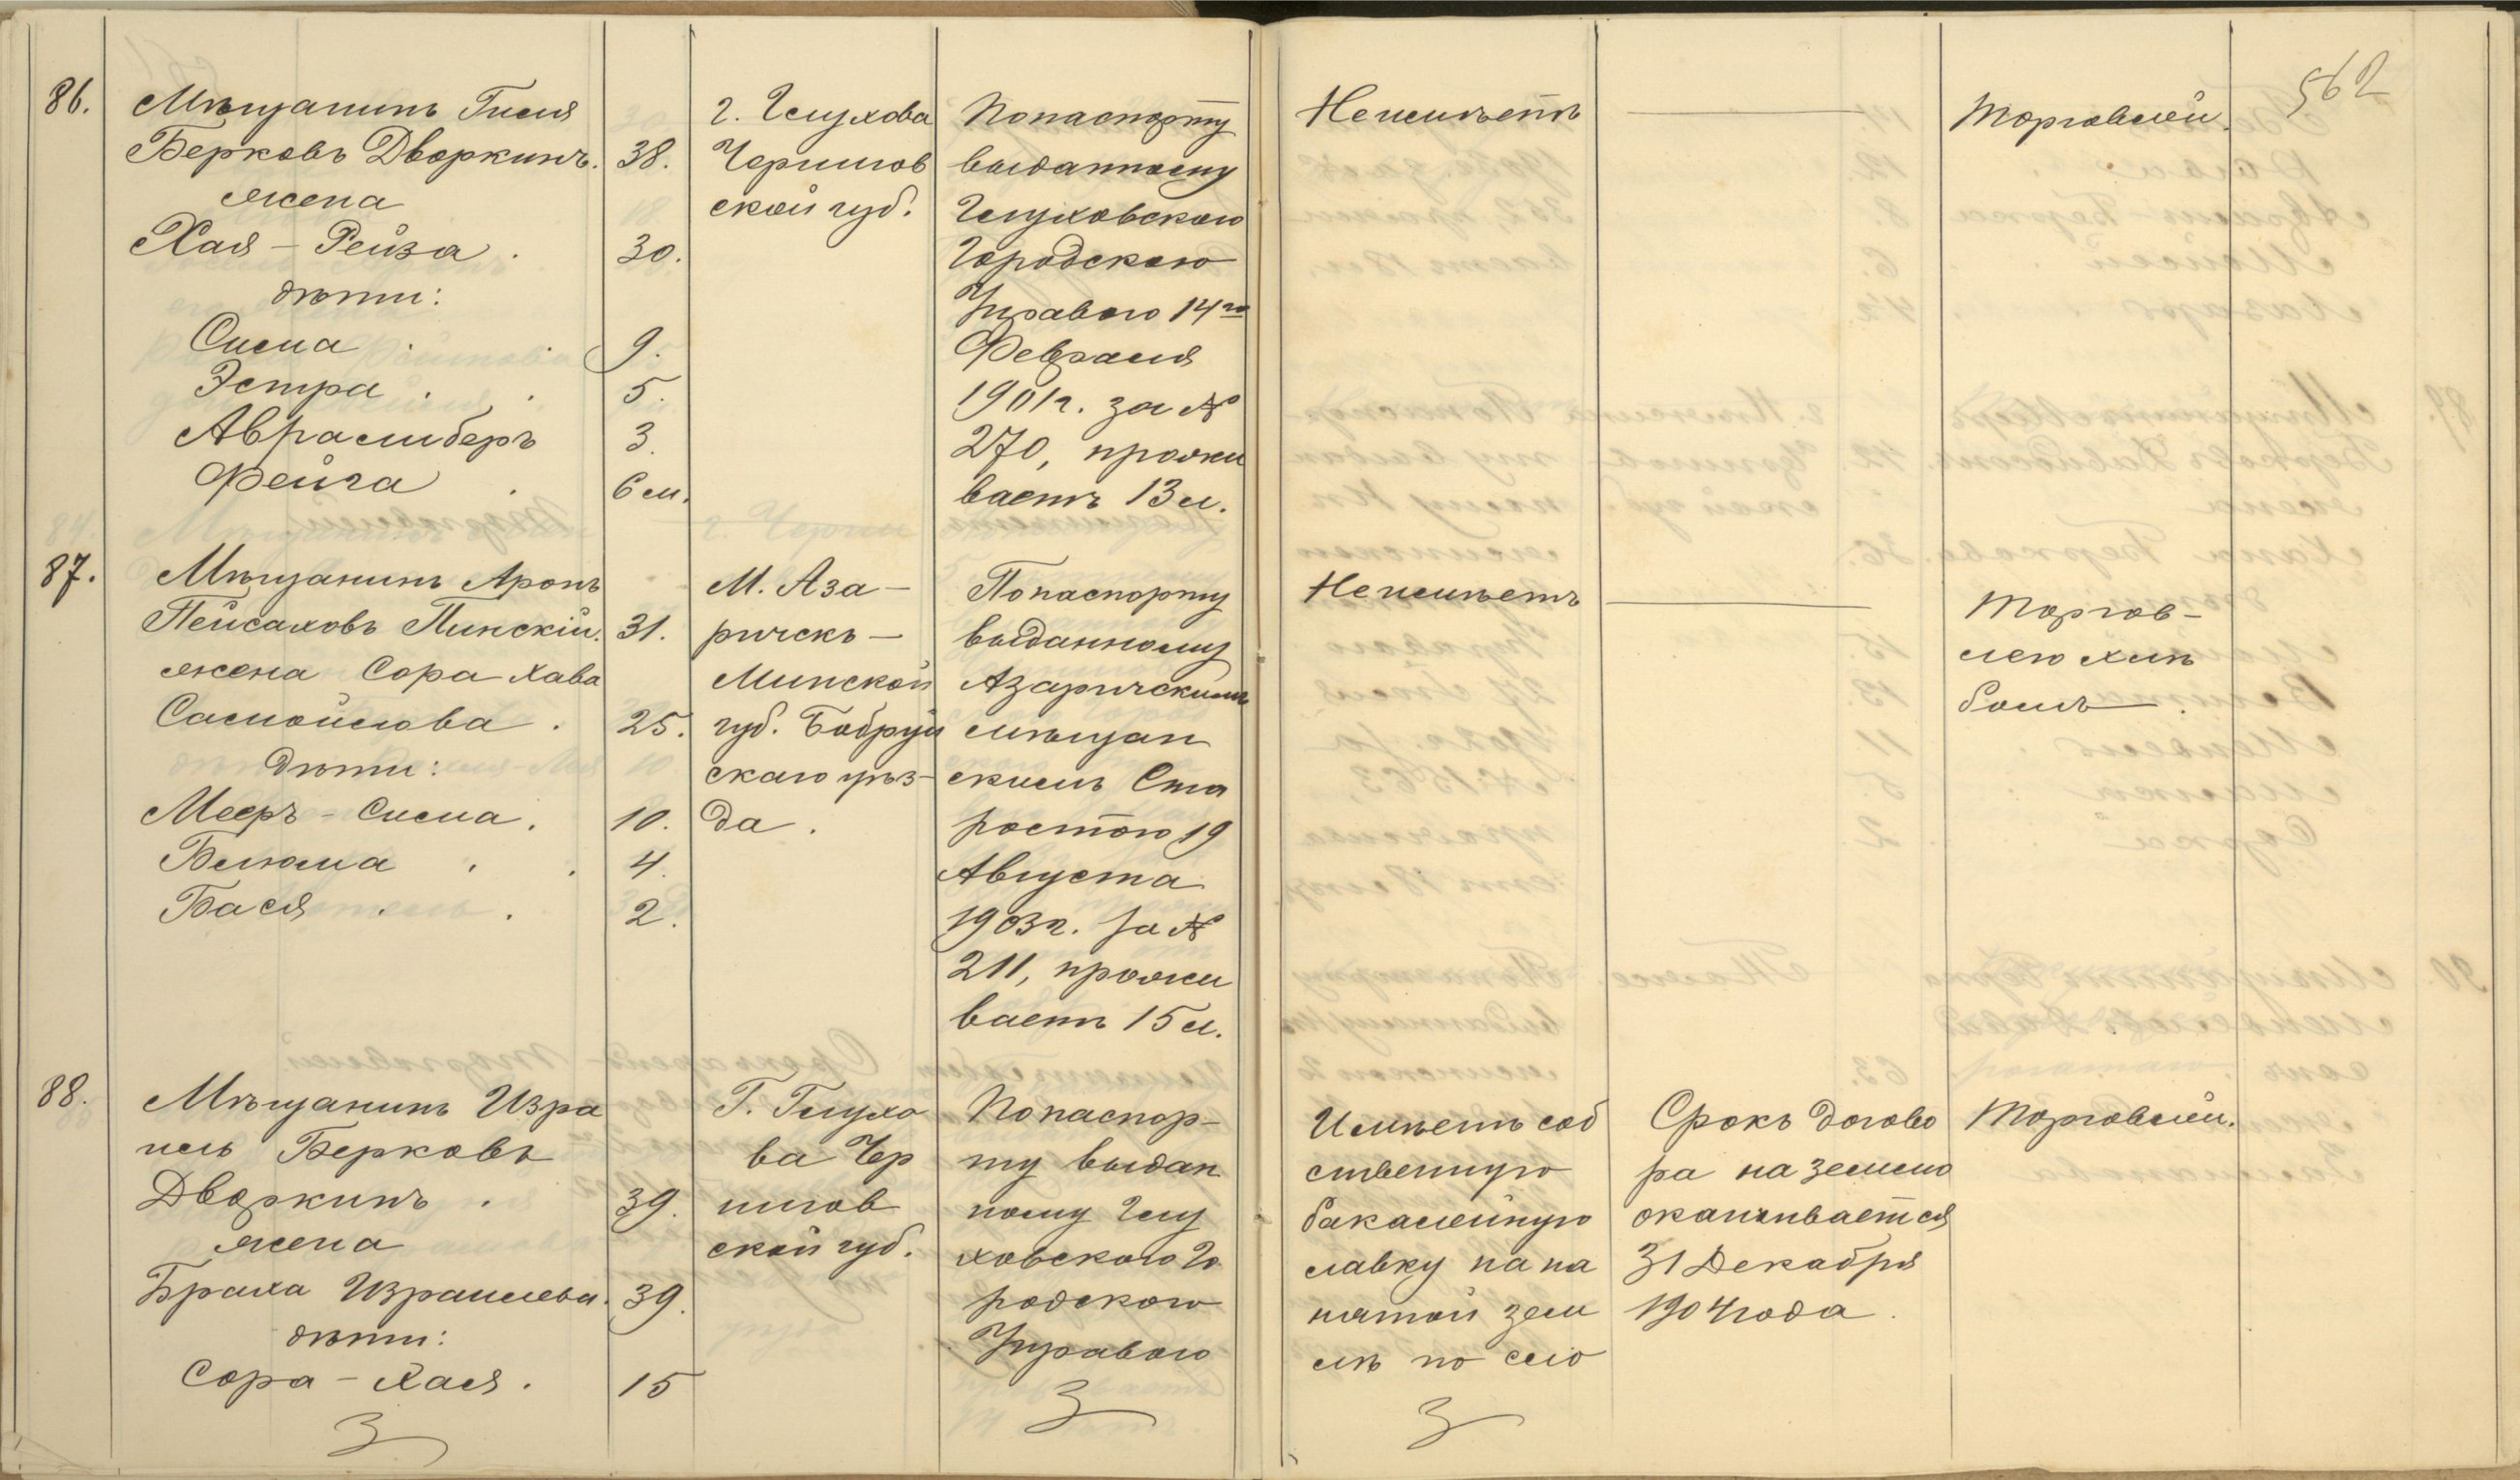 562
86.
Мѣщанинъ Гиля
Берковъ Дворкинъ. 38.
жена
Хая - Рейза . 30.
дѣти:
Сима . . 9.
Эстра . . 5.
Аврамиберъ 3.
Фейга . 6 м.
г. Глухова
Чернигов
ской губ.
По паспорту
выданному
Глуховскою
Городскою
Управою 14го
Февраля
1901 г. за №
270, прожи
ваетъ 13 л.
Неимѣетъ
Торговлей.
87.
Мѣщанинъ Аронъ
Пейсаховъ Пинскій. 31.
жена Сора Хава
Самойлова . 25.
дѣти:
Мееръ - Сима . 10.
Блюма . . 4.
Бася . . 2.
М. Аза -
ричскъ -
Минской
губ. Бобруй
скаго уѣз-
да .
По паспорту
выданному
Азаричскимъ
мѣщан
скимъ Ста
ростою 19
Августа
1903 г. за №
211, прожи
ваетъ 15 л.
Неимѣетъ
Торгов -
лею хлѣ
бомъ .
88.
Мѣщанинъ Изра
иль Берковъ
Дворкинъ . 39.
жена
Браха Израилева. 39.
дѣти:
Сора - Хася . 15
Г. Глухо
ва Чер
нигов
ской губ.
По паспор-
ту выдан
ному Глу
ховскою Го
родскою
Управою
Имѣетъ соб
ственную
бакалейную
лавку на на
нятой зем
лѣ по сло
Срокъ догово
ра на землю
оканчивается
31 Декабря
1904 года .
Торговлей.